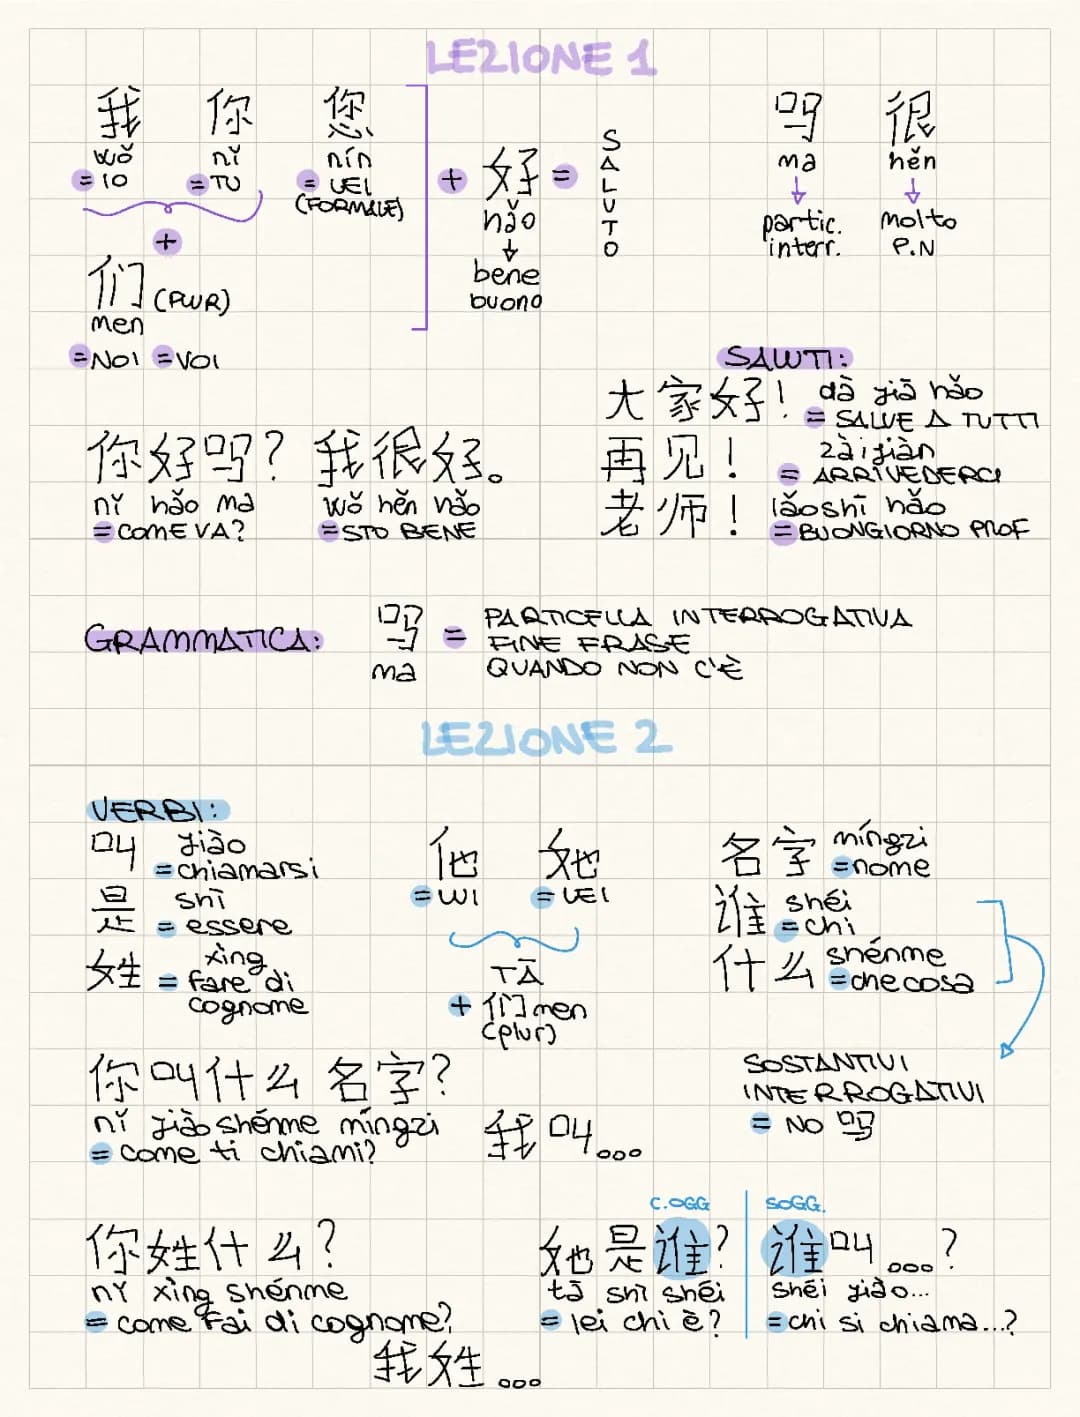 LEZIONE 1
我 你 您
wǒ nǐ nín
=IO =TU =LEI
(FORMALE)
+
们 (PLUR)
men
=NOI =VOI
+ 好 = SALUTO
hǎo
bene
buono
吗 很
ma hěn
partic. molto
interr. P.N
SALUTI:
大家好! dà jiā hǎo
= SALVE A TUTTI
再见! zàijiàn
= ARRIVEDERCI
老师! lǎoshī hǎo
=BUONGIORNO PROF
你好吗? 我很好。
nǐ hǎo ma wǒ hěn hǎo
=COME VA? =STO BENE
GRAMMATICA:
吗 = PARTICELLA INTERROGATIVA
ma FINE FRASE
QUANDO NON C'È
LEZIONE 2
VERBI:
叫 jiào
=chiamarsi
是 shì
= essere
姓 xìng
= fare di
cognome
他 她
=LUI =LEI
TĀ
+ 们 men
(plur)
名字 míngzi
=nome
谁 shéi
=chi
什么 shénme
=che cosa
SOSTANTIVI
INTERROGATIVI
= NO 吗
你叫什么名字?
nǐ jiào shénme míngzi
= come ti chiami?
我叫...
你姓什么?
nǐ xìng shénme
= come fai di cognome?
我姓...
C.OGG
她是谁?
tā shì shéi
= lei chi è?
SOGG.
谁叫...?
shéi jiào...
=chi si chiama...?